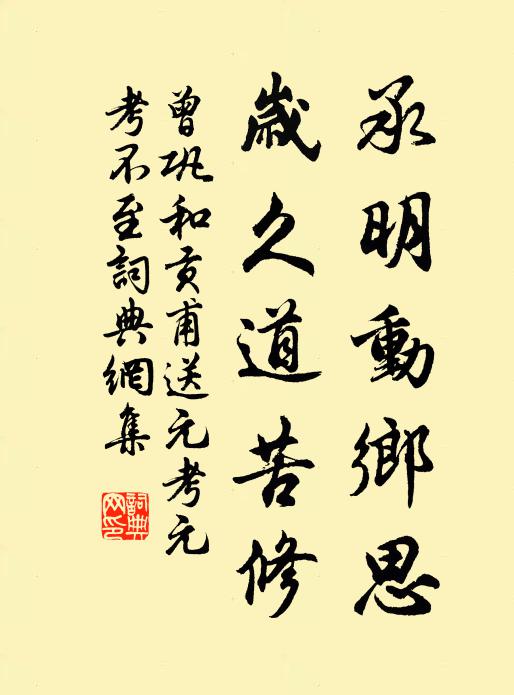 承明動鄉思
歲久道苦修
曾巩和贡甫送元考元
考不至詞典網集
詞典网印